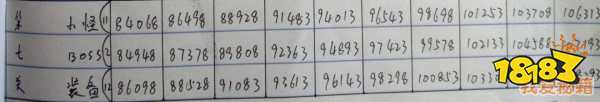 小怪 11 84068 86498 88928 91483 94013 96543 98698 101253 103708 106313
七 BOSS 12 84948 87378 89808 92363 94893 97423 99578 102133 104588
关 装备 12 86098 88528 91083 93613 96143 98298 100853
18183
我爱秘籍